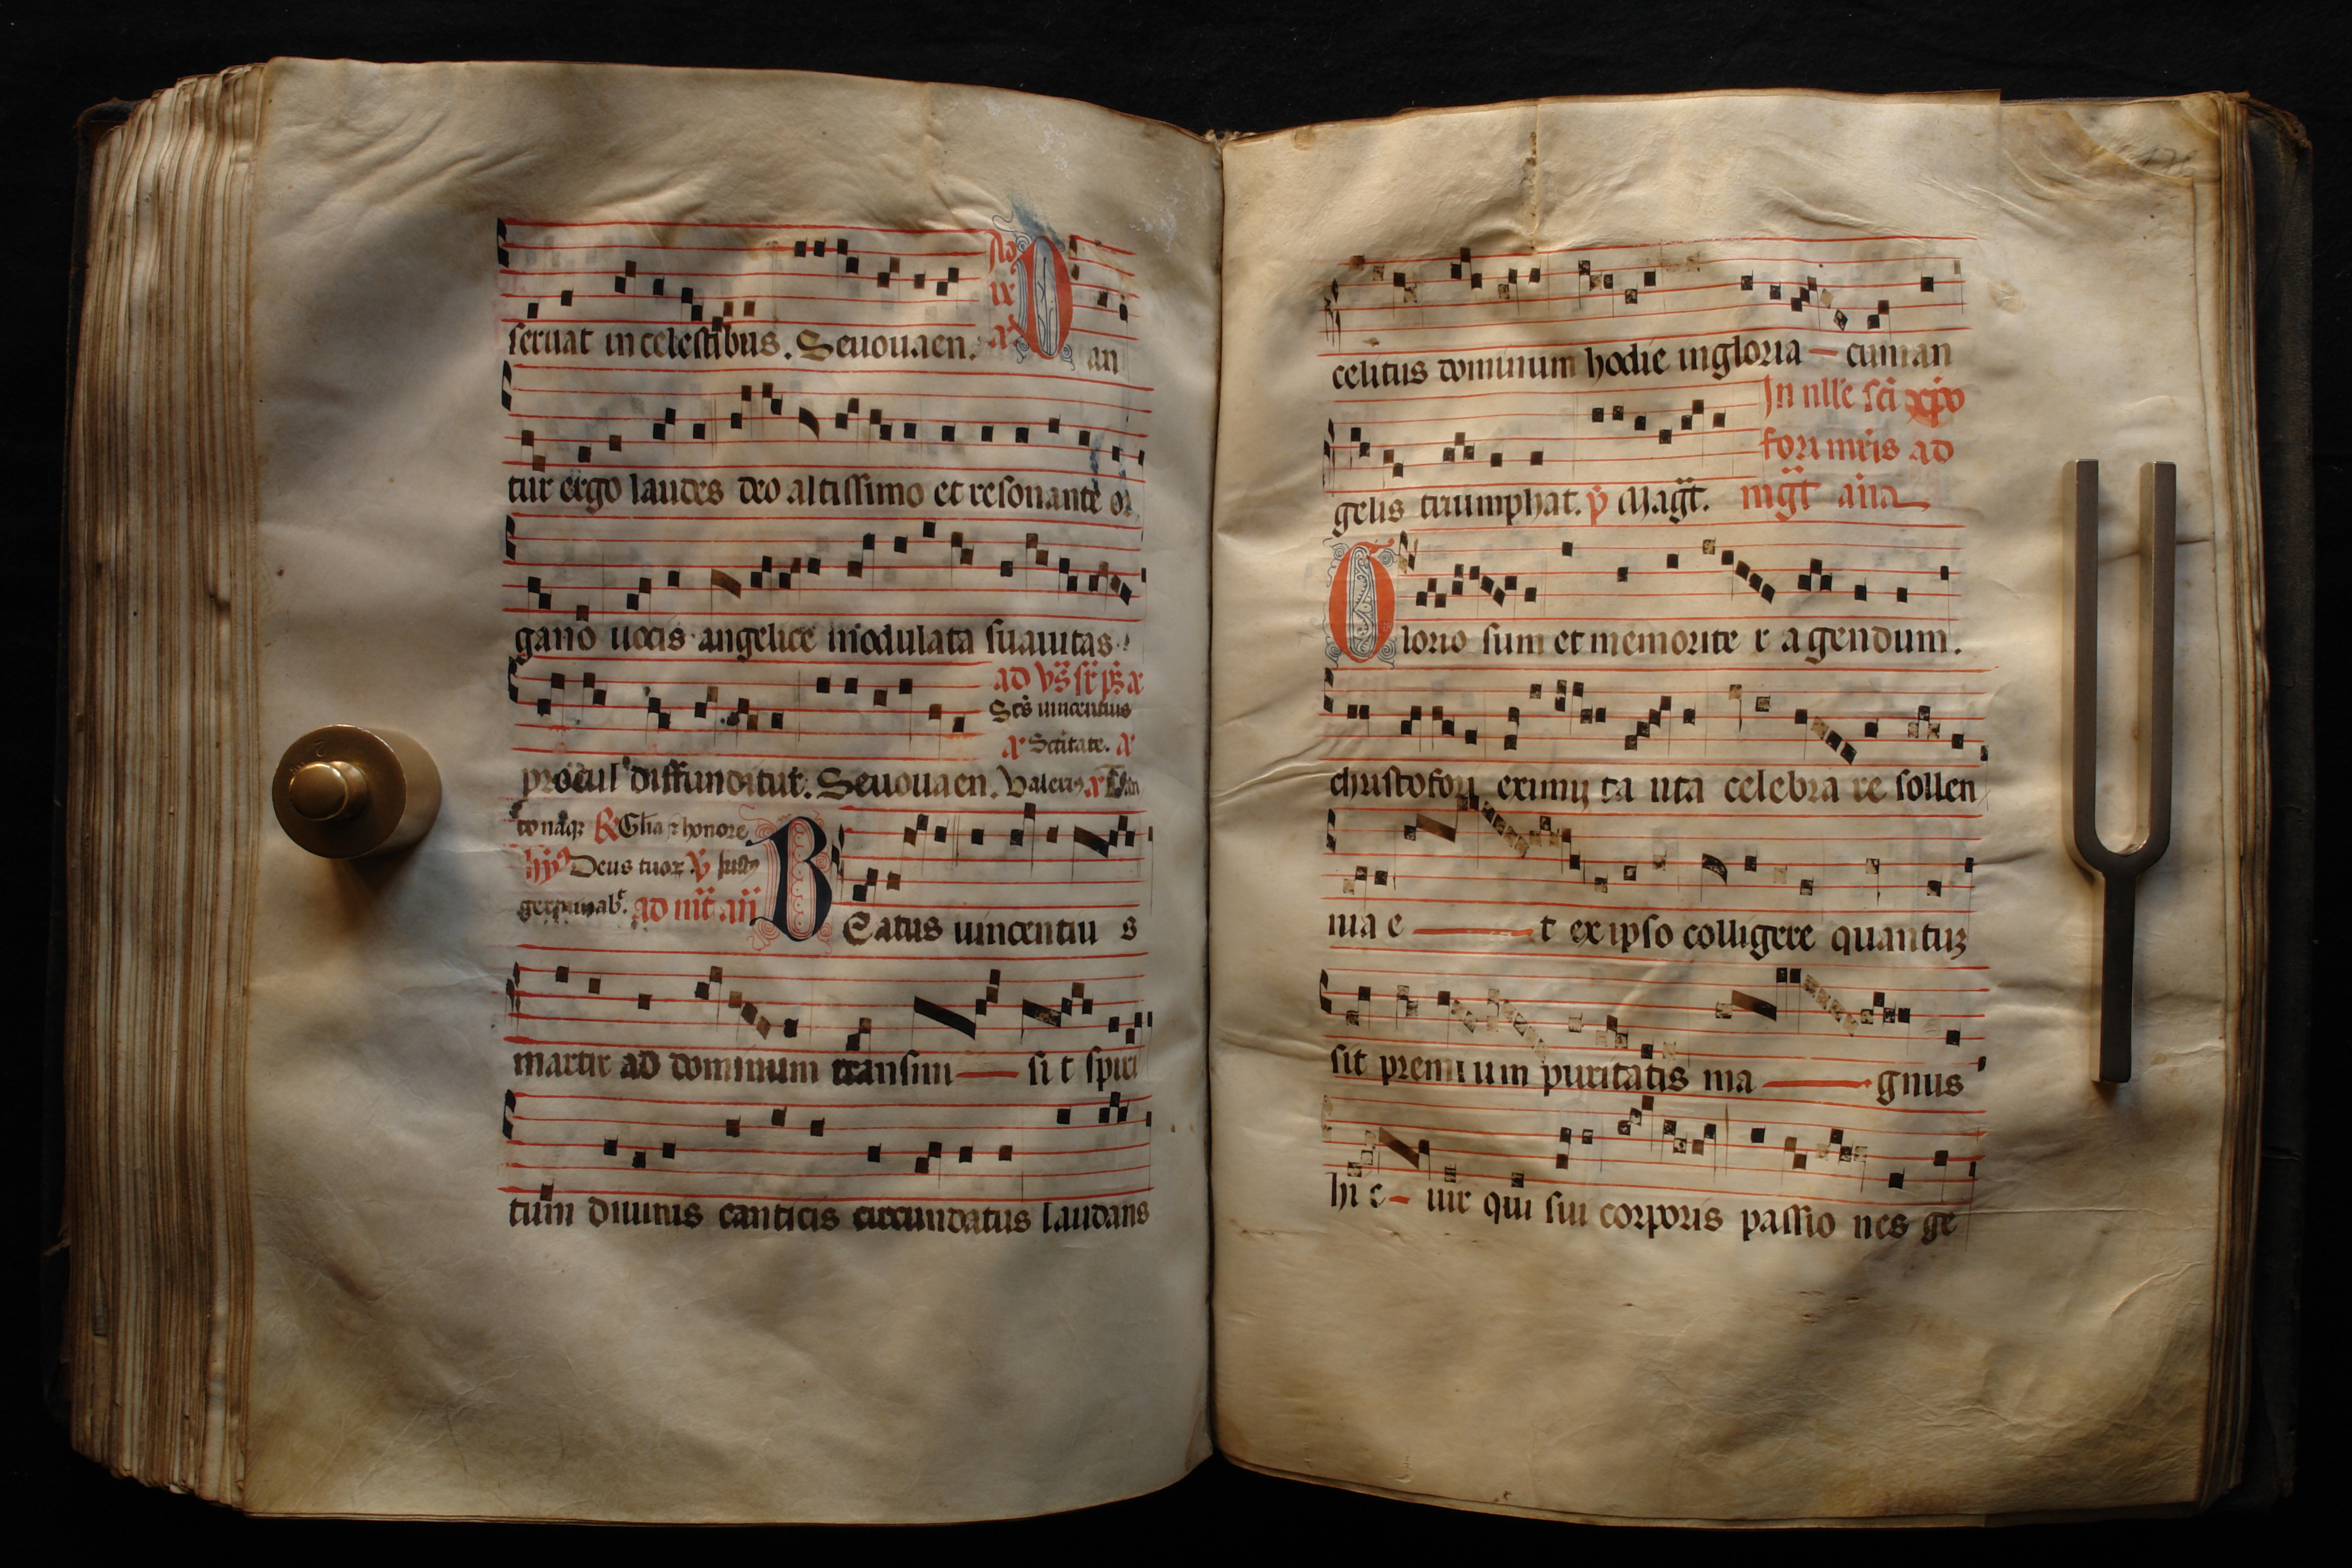 seruat in celestibus. Seuouaen.
an
tur ergo laudes deo altissimo et resonante or
gano uocis angelice modulata suauitas
procul diffunditur. Seuouaen. Valeri9
ad
Scs uincentius
Sctitate.
to naqꝫ Glia ⁊ honore
Deus tuoꝝ
ad
B Eatus uincentiu s
martir ad dominum transiui — si t spiri
tum diuinis canticis circundatus laudans
celitus dominum hodie in gloria — cum an
In nlle sci xpo
fori mris ad
gelis triumphat. p Magt. mgt ana
G lorio sum et memorite r a gendum.
christofori eximij ta uita celebra re sollen
nia e — t ex ipso colligere quantuꝫ
sit premi um puritatis ma — gnus
hi c — uir qui sui corporis passio nes ge